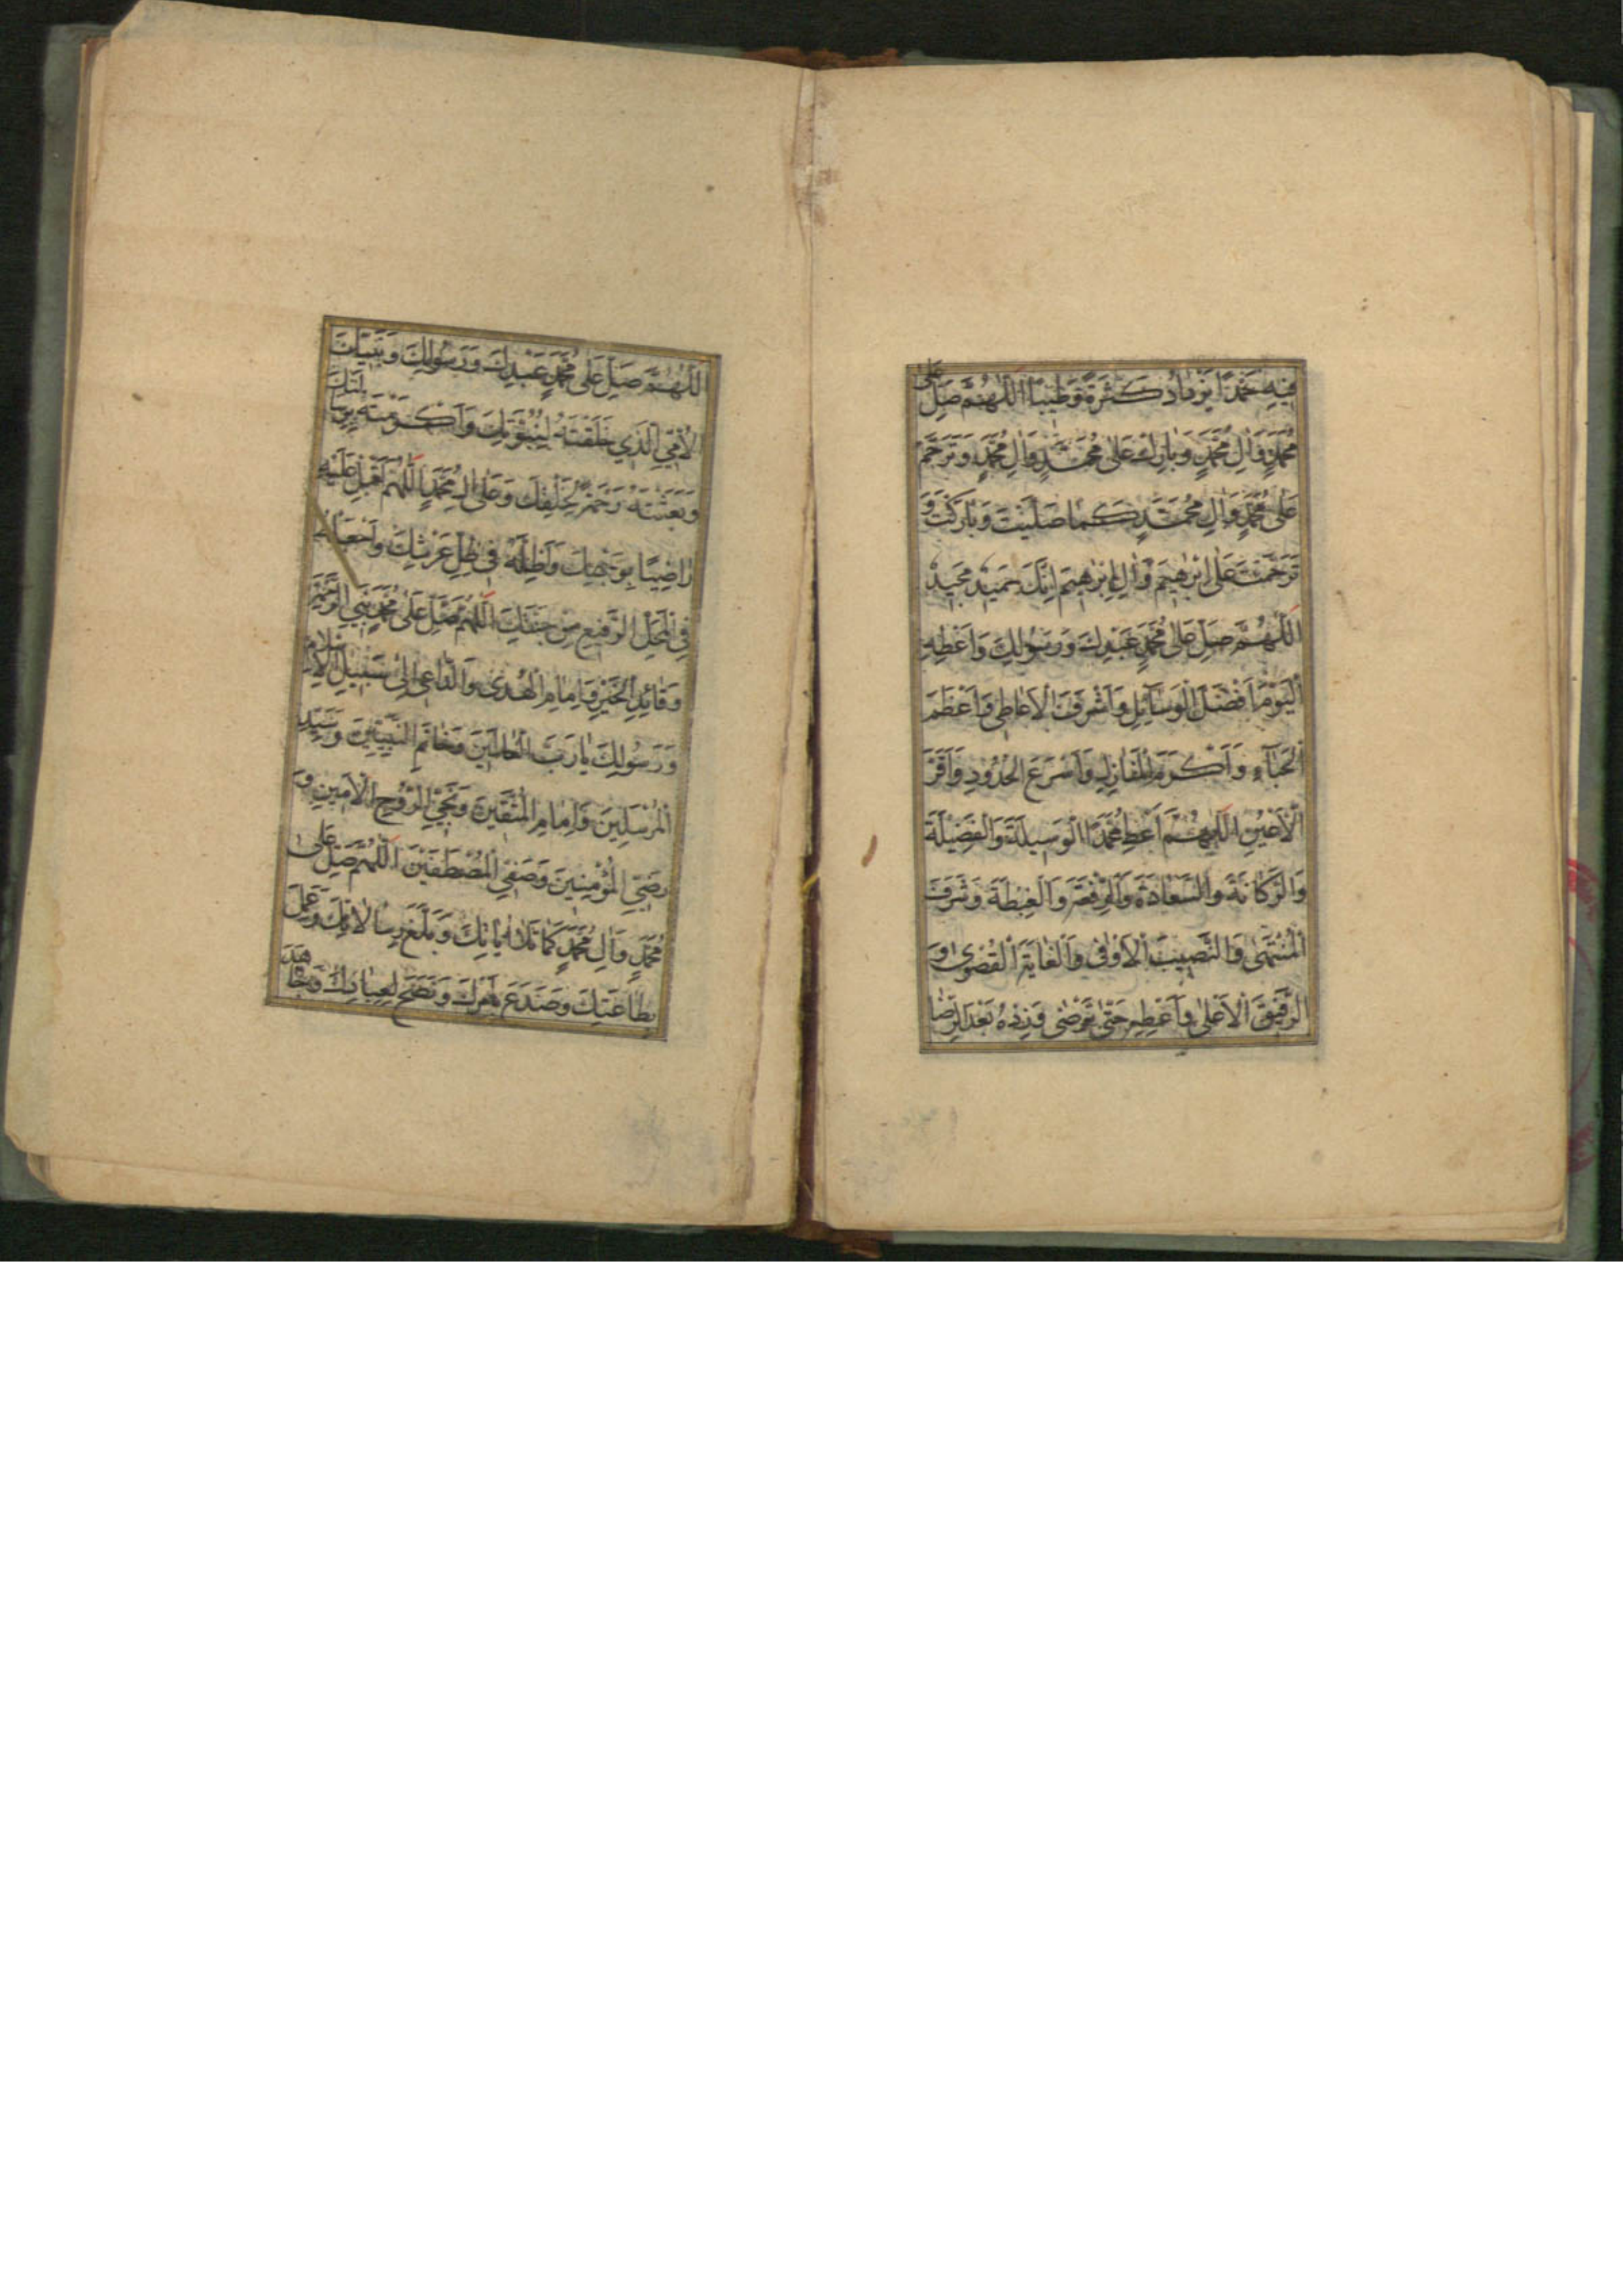 فِيهِ حَمْدًا يَزْدَادُ كَثْرَةً وَطِيبًا اَللّٰهُمَّ صَلِّ عَلٰى
مُحَمَّدٍ وَاٰلِ مُحَمَّدٍ وَبَارِكْ عَلٰى مُحَمَّدٍ وَاٰلِ مُحَمَّدٍ وَتَرَحَّمْ
عَلٰى مُحَمَّدٍ وَاٰلِ مُحَمَّدٍ كَمَا صَلَّيْتَ وَبَارَكْتَ وَ
تَرَحَّمْتَ عَلٰى اِبْرٰهِيمَ وَاٰلِ اِبْرٰهِيمَ اِنَّكَ حَمِيدٌ مَجِيدٌ
اَللّٰهُمَّ صَلِّ عَلٰى مُحَمَّدٍ عَبْدِكَ وَرَسُولِكَ وَاَعْطِهِ
الْيَوْمَ اَفْضَلَ الْوَسَآئِلِ وَاَشْرَفَ الْاَعَاطِي وَاَعْظَمَ
الْحَبَآءِ وَاَكْرَمَ الْمَنَازِلِ وَاَسْرَعَ الْحُدُودِ وَاَقَرَّ
الْاَعْيُنِ اَللّٰهُمَّ اَعْطِ مُحَمَّدًا الْوَسِيلَةَ وَالْفَضِيلَةَ
وَالزَّكَانَةَ وَالسَّعَادَةَ وَالرِّفْعَةَ وَالْغِبْطَةَ وَشَرَفَ
الْمُنْتَهٰى وَالنَّصِيبَ الْاَوْفٰى وَالْغَايَةَ الْقُصْوٰى وَ
الرَّفِيقَ الْاَعْلٰى وَاَعْطِهِ حَتّٰى يَرْضٰى وَزِدْهُ بَعْدَ الرِّضَا
اَللّٰهُمَّ صَلِّ عَلٰى مُحَمَّدٍ عَبْدِكَ وَرَسُولِكَ وَنَبِيِّكَ
الْاُمِّيِّ الَّذِي خَلَقْتَهُ لِنُبُوَّتِكَ وَاَكْرَمْتَهُ بِرِسَالَتِكَ
وَبَعَثْتَهُ رَحْمَةً لِخَلْقِكَ وَعَلٰى اٰلِ مُحَمَّدٍ اَللّٰهُمَّ اَقْبِلْ عَلَيْهِ
رَاضِيًا بِوَجْهِكَ وَاَظِلَّهُ فِي ظِلِّ عَرْشِكَ وَاجْعَلْهُ
فِي الْمَحَلِّ الرَّفِيعِ مِنْ جَنَّتِكَ اَللّٰهُمَّ صَلِّ عَلٰى مُحَمَّدٍ نَبِيِّ الرَّحْمَةِ
وَقَائِدِ الْخَيْرِ وَاِمَامِ الْهُدٰى وَالدَّاعِي اِلٰى سَبِيلِ الْاِسْلَامِ
وَرَسُولِكَ يَا رَبَّ الْعَالَمِينَ وَخَاتَمِ النَّبِيِّينَ وَسَيِّدِ
الْمُرْسَلِينَ وَاِمَامِ الْمُتَّقِينَ وَنَجِيِّ الرُّوحِ الْاَمِينِ وَ
رَضِيِّ الْمُؤْمِنِينَ وَصَفِيِّ الْمُصْطَفَيْنَ اَللّٰهُمَّ صَلِّ عَلٰى
مُحَمَّدٍ وَاٰلِ مُحَمَّدٍ كَمَا تَلَا اٰيَاتِكَ وَبَلَّغَ رِسَالَاتِكَ وَعَمِلَ
بِطَاعَتِكَ وَصَدَعَ بِاَمْرِكَ وَنَصَحَ لِعِبَادِكَ وَجَاهَدَ